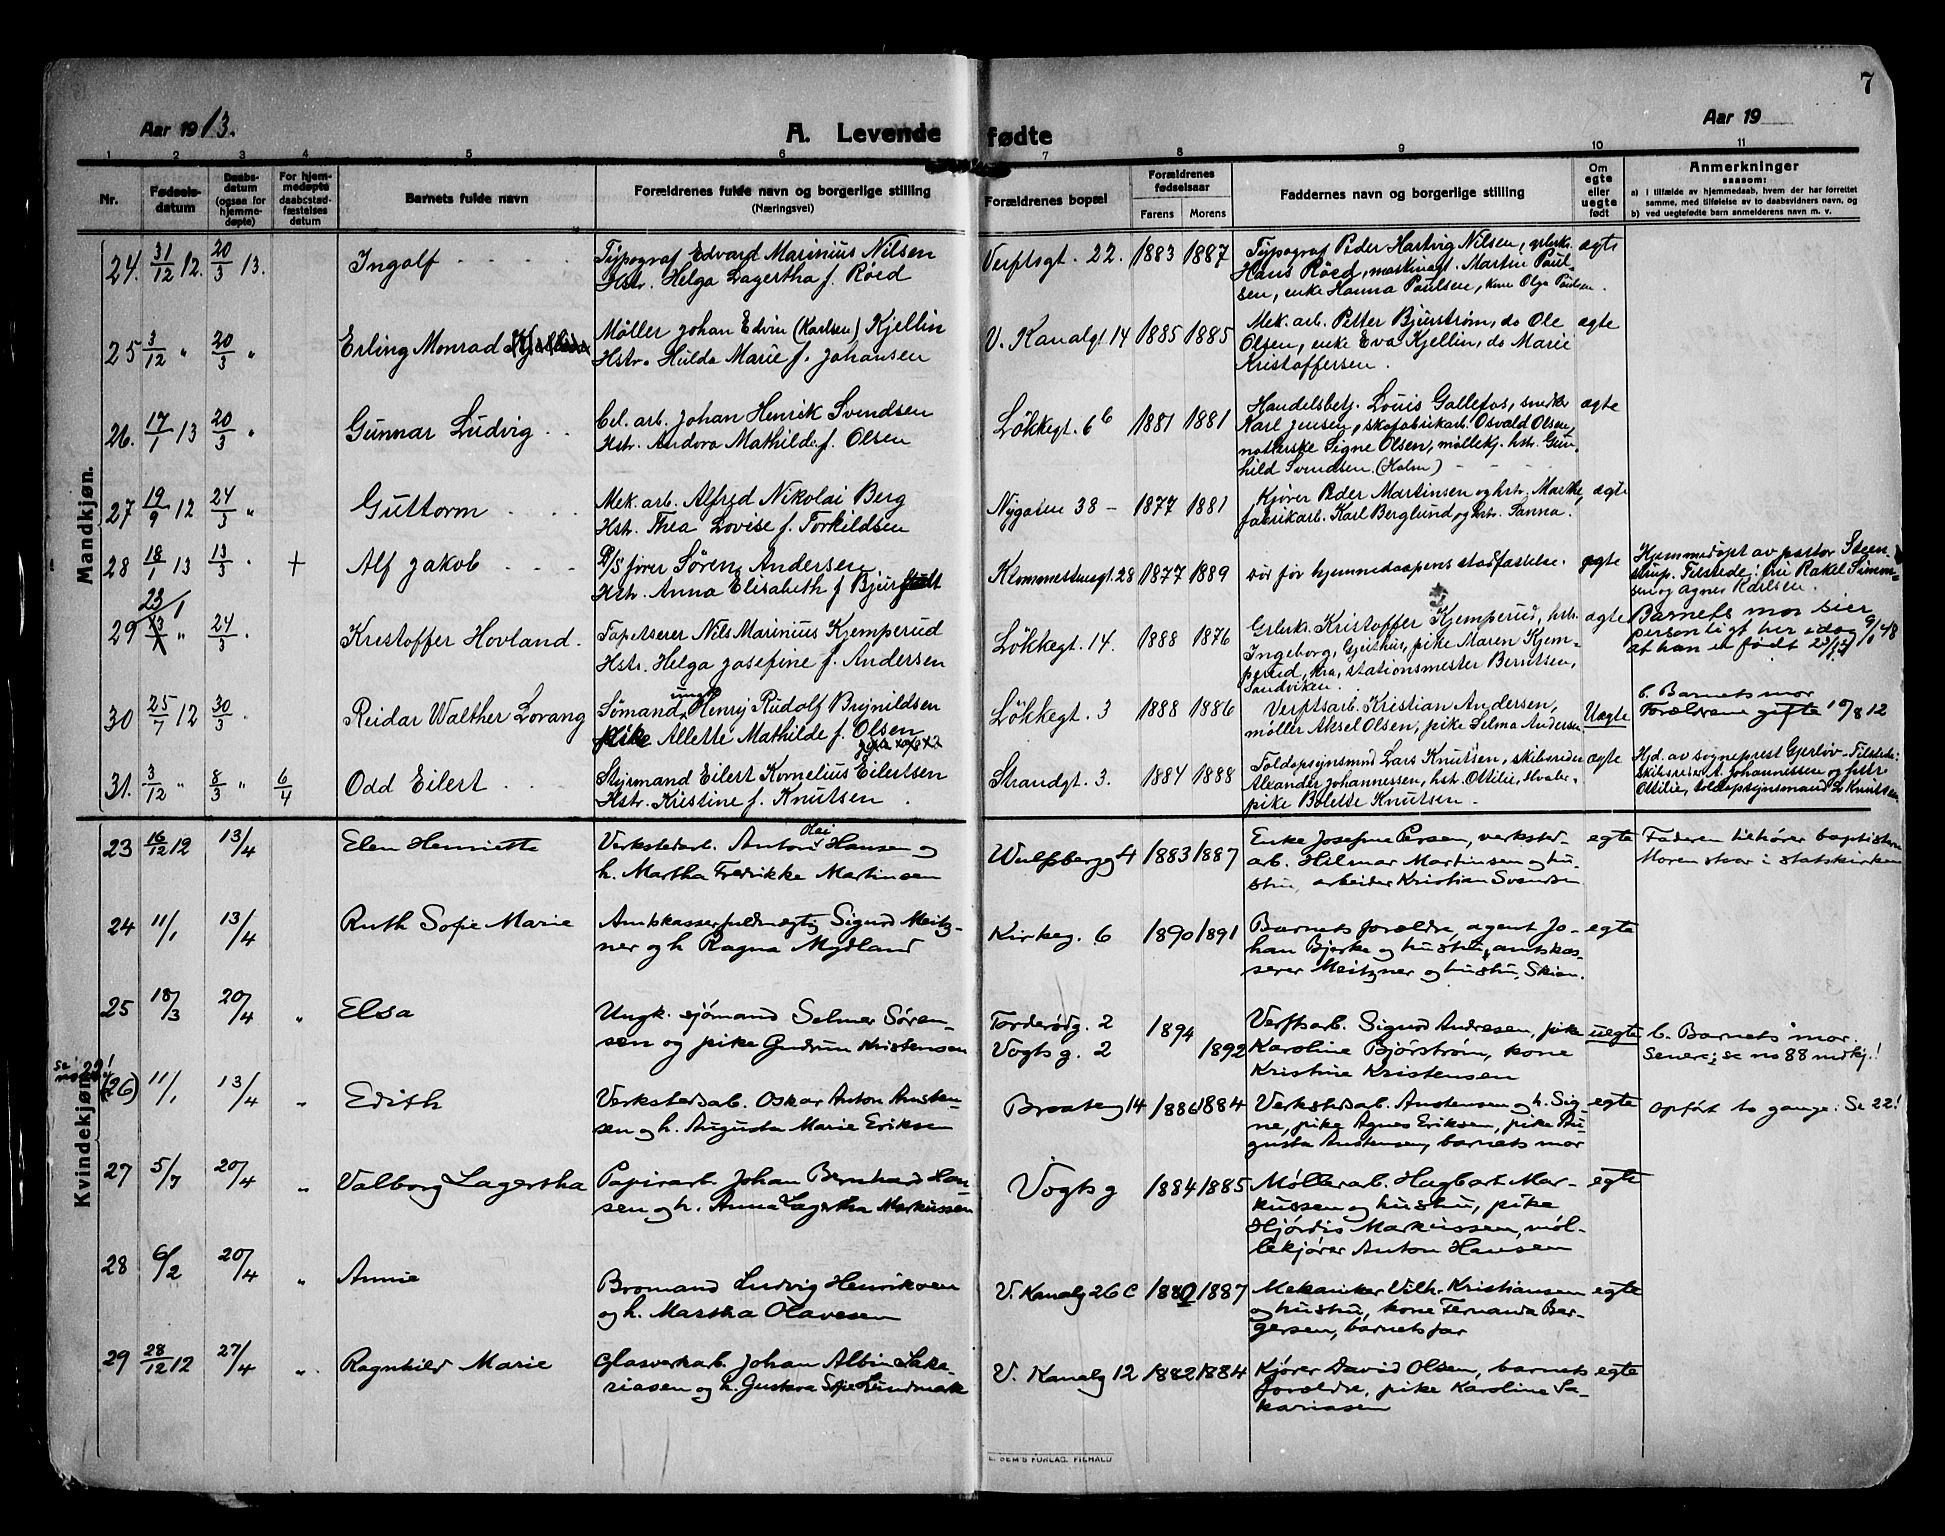 7
Aar 1913.
A. Levende fødte
Aar 19
1 2 3 4 5 6 7 8 9 10 11
Nr.
Fødsels-
datum
Daabs-
datum
(ogsaa for
hjemme-
døpte)
For hjem-
medøpte
daabsstad-
fæstelses
datum
Barnets fulde navn
Forældrenes fulde navn og borgerlige stilling
(Næringsvei)
Forældrenes bopæl
Forældrenes
fødselsaar
Farens Morens
Faddernes navn og borgerlige stilling
Om
egte
eller
uegte
født
Anmerkninger
saasom:
a) i tilfælde av hjemmedaab, hvem der har forrettet
samme, med tilføielse av to daabsvidners navn, og
b) ved uegtefødte barn anmelderens navn m. v.
Mandkjøn.
24. 31/12 12. 20/3 13. Ingolf
Typograf Edvard Marinius Nilsen
Hstr. Helga Lagertha f. Röed
Verftsgt. 22. 1883 1887
Typograf Peder Hartvig Nilsen,
Hans Röed, maskinagt. Martin Paul-
sen, enke Hanna Paulsen, kone Olga Paulsen.
ægte
25 3/12 " 20/3 " Erling Monrad
Møller Johan Edvin (Karlsen) Kjellin
Hstr. Hulda Marie f. Johansen
V. Kanalgt 14 1885 1885
Mek. arb. Petter Bjurstrøm, do Ole
Olsen, enke Eva Kjellin, do Marie
Kristoffersen.
ægte
26. 17/1 13 20/3 " Gunnar Ludvig
Cel. arb. Johan Henrik Svendsen
Hstr. Andora Mathilde f. Olsen
Løkkegt. 6b 1881 1881
Handelsbetj. Louis Gallefos, snedker
Karl Jensen, skofabrikarb. Osvald Olsen,
Signe Olsen, møllekj. hstr. Gun-
hild Svendsen (Holm)
ægte
27 19/9 12 24/3 " Guttorm
Mek. arb. Alfred Nikolai Berg
Hstr. Thea Lovise f. Torkildsen
Nygaten 38 - 1877 1881
Kjører Peder Martinsen og hstr. Marthe,
fabrikarb. Karl Berglund og hstr. Sanna.
ægte
28 18/1 13 13/3 + Alf Jakob
fører Søren Andersen
Hstr. Anna Elisabeth f Bjur
28 1877 1889
Dør før hjemmedaapens stadfæstelse.
ægte
Hjemmedøpt av pastor Steen-
strup. Tilstede: fru Rakel Simon-
sen og Agnes Karlsen.
23/1
29 13/1 " 24/3 Kristoffer Hovland.
Tapetserer Nils Marinius Kjemperud
Hstr. Helga Josefine f. Andersen
Løkkegt. 14. 1888 1876
Grlerk. Kristoffer Kjemperud, hstr.
Ingeborg, pike Maren Kjem-
perud, Kra, stationsmester Berntsen,
Sandviken.
ægte
Barnets mor sier
personligt her idag 9/1 48
at han er født 23/1 13
30 25/7 12 30/3 Reidar Walther Lorang
Sømand, ungk. Henrij Rudolf Brynildsen
pike Allette Mathilde f. Olsen
Løkkegt. 3 1888 1886
Verftsarb. Kristian Andersen,
møller Aksel Olsen, pike Selma Andersen
Uægte
b. Barnets mor
Forældrene gifte 10/8 12
31. 3/12 " 8/3 " 6/4 Odd Eilert
Styrmand Eilert Kornelius Eilertsen
Hstr. Kristine f. Knutsen.
Strandgt. 3. 1884 1888
Toldopsynsmnd Lars Knutsen, skibsreder
Alexander Johannessen, hstr. Ottilie,
pike Bolette Knutsen.
ægte
Hjd. av sogneprest Gjerløv. Tilstede:
Skibsreder A. Johannessen og
Ottilie, toldopsynsmand L. Knutsen.
Kvindekjøn.
23 16/12 12 13/4 Elen Henriette
Verkstedarb. Anton Olai Hansen og
h. Martha Fredrikke Martinsen
Wulfsbergg 4 1883 1887
Enke Josefine Persen, verksted-
arb. Hilmar Martinsen og hu-
stru, arbeider Kristian Svendsen
egte
Faderen tilhører baptisterne
Moren staar i statskirken
24 11/1 13/4 Ruth Sofie Marie
Amtskasserfuldmægtig Sigurd Meitz-
ner og h Ragna Mydland
Kirkeg. 6 1890 1891
Barnets forældre, agent Jo-
han Bjerke og hustru, amtskas-
serer Meitzner og hustru, Skien.
egte
25 18/3 20/4 " Elsa
Ungk. sjömand Selmer Sören-
sen og pike Gudrun Kristensen
Torderødg. 2
Vogts g. 2
1894 1892
Verftsarb. Sigurd Andresen, pike
Karoline Bjørstrøm, kone
Kristine Kristensen
uegte
b. Barnets mor.
Senere; se no 88 mdkj.!
se no 22!
(26) 11/1 13/4 " Edith
Verkstedsarb. Oskar Anton Austen-
sen og h. Augusta Marie Eriksen
Braateng 14 1886 1884
Verkstedsarb. Austensen og h. Sig-
ne, pike Agnes Eriksen, pike Au-
gusta Austensen, barnets mor
egte
Opført to gange. Se 22!
27 5/7 20/4 " Valborg Lagertha
Papirarb. Johan Bernhard Han-
sen og h. Anna Lagertha Markussen
Vogts g 1884 1885
Møllerarb. Hagbart Mar-
kussen og hustru, pike
Hjórdis Markussen, möl-
lekjører Anton Hansen
egte
28 6/2 20/4 " Annie
Bromand Ludvig Henriksen
og h. Martha Olavesen
V. Kanalg 26 C 1880 1887
Mekaniker Vilh. Kristiansen
og hustru, kone Fernanda Bør-
gersen, barnets far
egte
29 28/12 12 27/4 " Ragnhild Marie
Glasverkarb. Johan Albin Saka-
riasen og h. Gustava Sofie Lundmark
V. Kanalg 12 1882 1884
Kjører David Olsen, barnets
forældre, pike Karoline Sa-
kariasen
egte
E. SEM'S FORLAG, FR.HALD